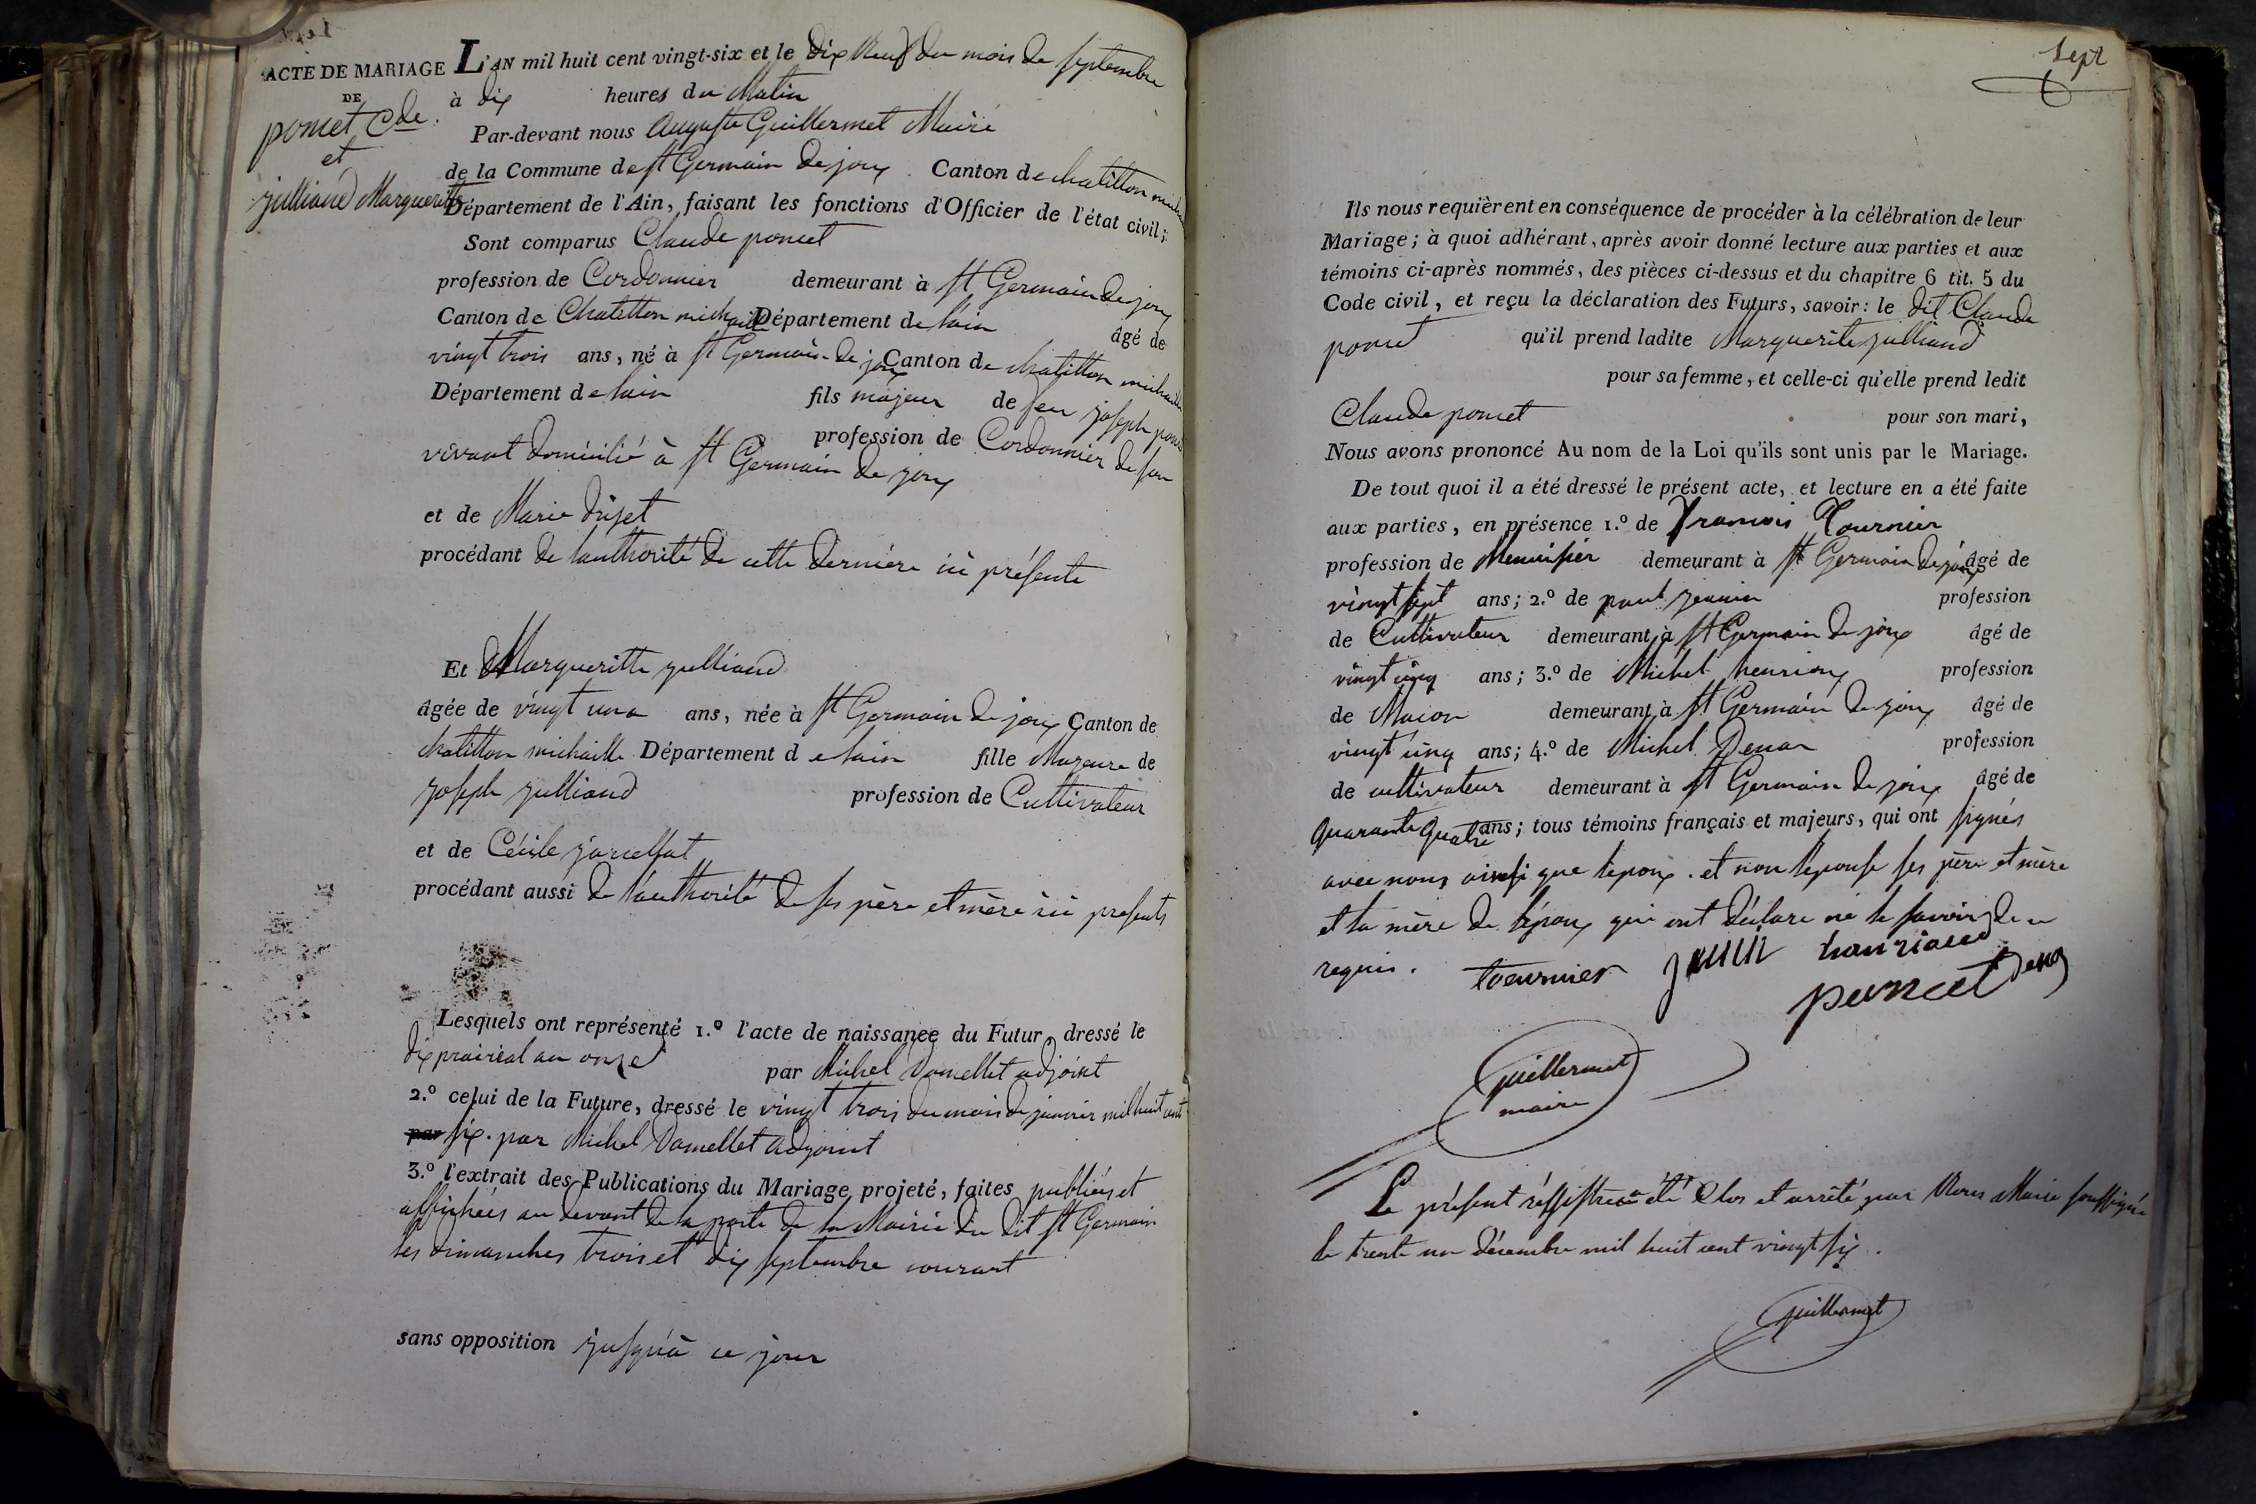 ACTE DE MARIAGE
DE
poncet Cde.
et
julliand Margueritte
L'AN mil huit cent vingt-six et le dix Neuf du mois de septembre
à dix heures du Matin
Par-devant nous Auguste Guillermet Maire
de la Commune de st Germain de joux. Canton de chatillon
Département de l'Ain, faisant les fonctions d'Officier de l'état civil;
Sont comparus Claude poncet
profession de Cordonnier demeurant à st Germain de joux
Canton de Chatillon michaille Département de lain âgé de
vingt trois ans, né à st Germain de joux Canton de chatillon michaille
Département de lain fils majeur de feu joseph poncet
profession de Cordonnier de son
vivant domicilié à st Germain de joux
et de Marie
procédant de lauthorité de cette dernière ici présente
Et Margueritte julliand
âgée de vingt un ans, née à st Germain de joux Canton de
chatillon michaille Département de lain fille Majeure de
joseph julliand profession de Cultivateur
et de Cécile
procédant aussi de l'authorité de ses père et mère ici presents
Lesquels ont représenté 1.º l'acte de naissance du Futur, dressé le
dix prairial an onze par Michel adjoint
2.º celui de la Future, dressé le vingt trois du mois de janvier mil huit cent
par six. par Michel adjoint
3.º l'extrait des Publications du Mariage projeté, faites publiées et
affichées au devant de la porte de la Mairie du dit st Germain
les dimanches trois et dix septembre courant
sans opposition jusqu'à ce jour
Sept
Ils nous requièrent en conséquence de procéder à la célébration de leur
Mariage; à quoi adhérant, après avoir donné lecture aux parties et aux
témoins ci-après nommés, des pièces ci-dessus et du chapitre 6 tit. 5 du
Code civil, et reçu la déclaration des Futurs, savoir: le dit Claude
poncet qu'il prend ladite Marguerite julliand
pour sa femme, et celle-ci qu'elle prend ledit
Claude poncet pour son mari,
Nous avons prononcé Au nom de la Loi qu'ils sont unis par le Mariage.
De tout quoi il a été dressé le présent acte, et lecture en a été faite
aux parties, en présence 1.º de François Tournier
profession de Menuisier demeurant à st Germain de joux âgé de
vingt sept ans; 2.º de paul jeunin profession
de Cultivateur demeurant à st Germain de joux âgé de
vingt cinq ans; 3.º de Michel henrioux profession
de Macon demeurant à st Germain de joux âgé de
vingt cinq ans; 4.º de Michel profession
de cultivateur demeurant à st Germain de joux âgé de
quarante quatre ans; tous témoins français et majeurs, qui ont signés
avec nous ainsi que lepoux. et non lepouse ses père et mère
et la mère de l'époux qui ont déclaré ne le savoir de ce
requis. tournier
poncet
Guillermet
maire
Le présent a été clos et arrêté par Nous Maire soussigné
le trente un décembre mil huit cent vingt six.
Guillermet